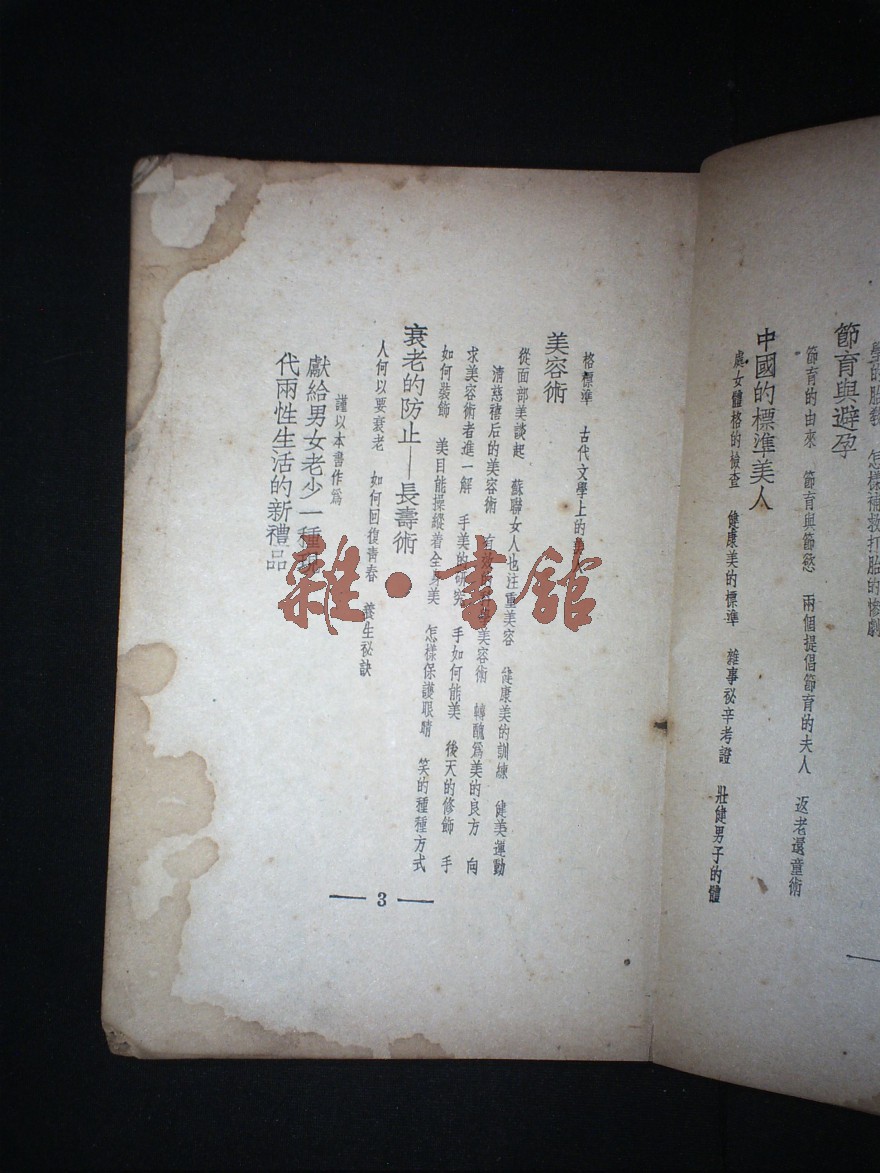 學的胎教　怎樣補救打胎的慘劇
節育與避孕
節育的由來　節育與節慾　兩個提倡節育的夫人　返老還童術
中國的標準美人
處女體格的檢查　健康美的標準　雜事祕辛考證　壯健男子的體
格標準　古代文學上的美人
美容術
從面部美談起　蘇聯女人也注重美容　健康美的訓練　健美運動
清慈禧后的美容術　美容術　轉醜爲美的良方　向
求美容術者進一解　手美的研究　手如何能美　後天的修飾　手
如何裝飾　美目能操縱着全身美　怎樣保護眼睛　笑的種種方式
衰老的防止——長壽術
人何以要衰老　如何回復青春　養生祕訣
謹以本書作爲
獻給男女老少一種現
代兩性生活的新禮品
3
雜·書館